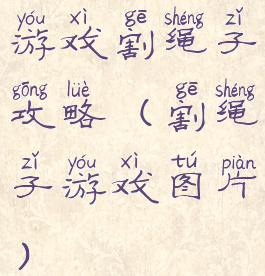 yóu xì gē shéng zǐ
游戏割绳子
gōng lüè gē shéng
攻略(割绳
zǐ yóu xì tú piàn
子游戏图片
)